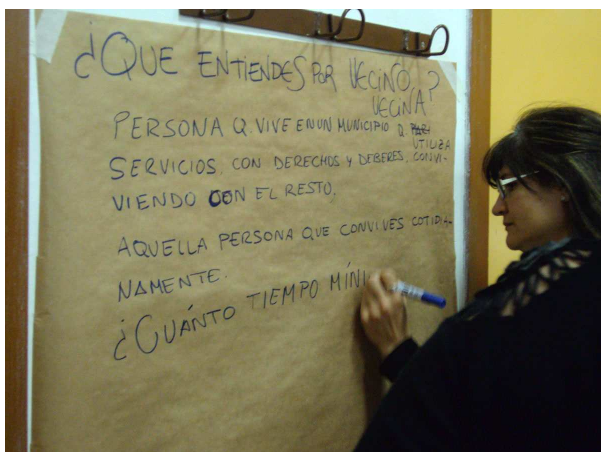 ¿QUE ENTIENDES POR VECINO,
VECINA?
PERSONA Q. VIVE EN UN MUNICIPIO Q.
UTILIZA
SERVICIOS, CON DERECHOS Y DEBERES, CONVI-
VIENDO CON EL RESTO.
AQUELLA PERSONA QUE CONVIVES COTIDIA-
NAMENTE.
¿CUÁNTO TIEMPO MÍNI